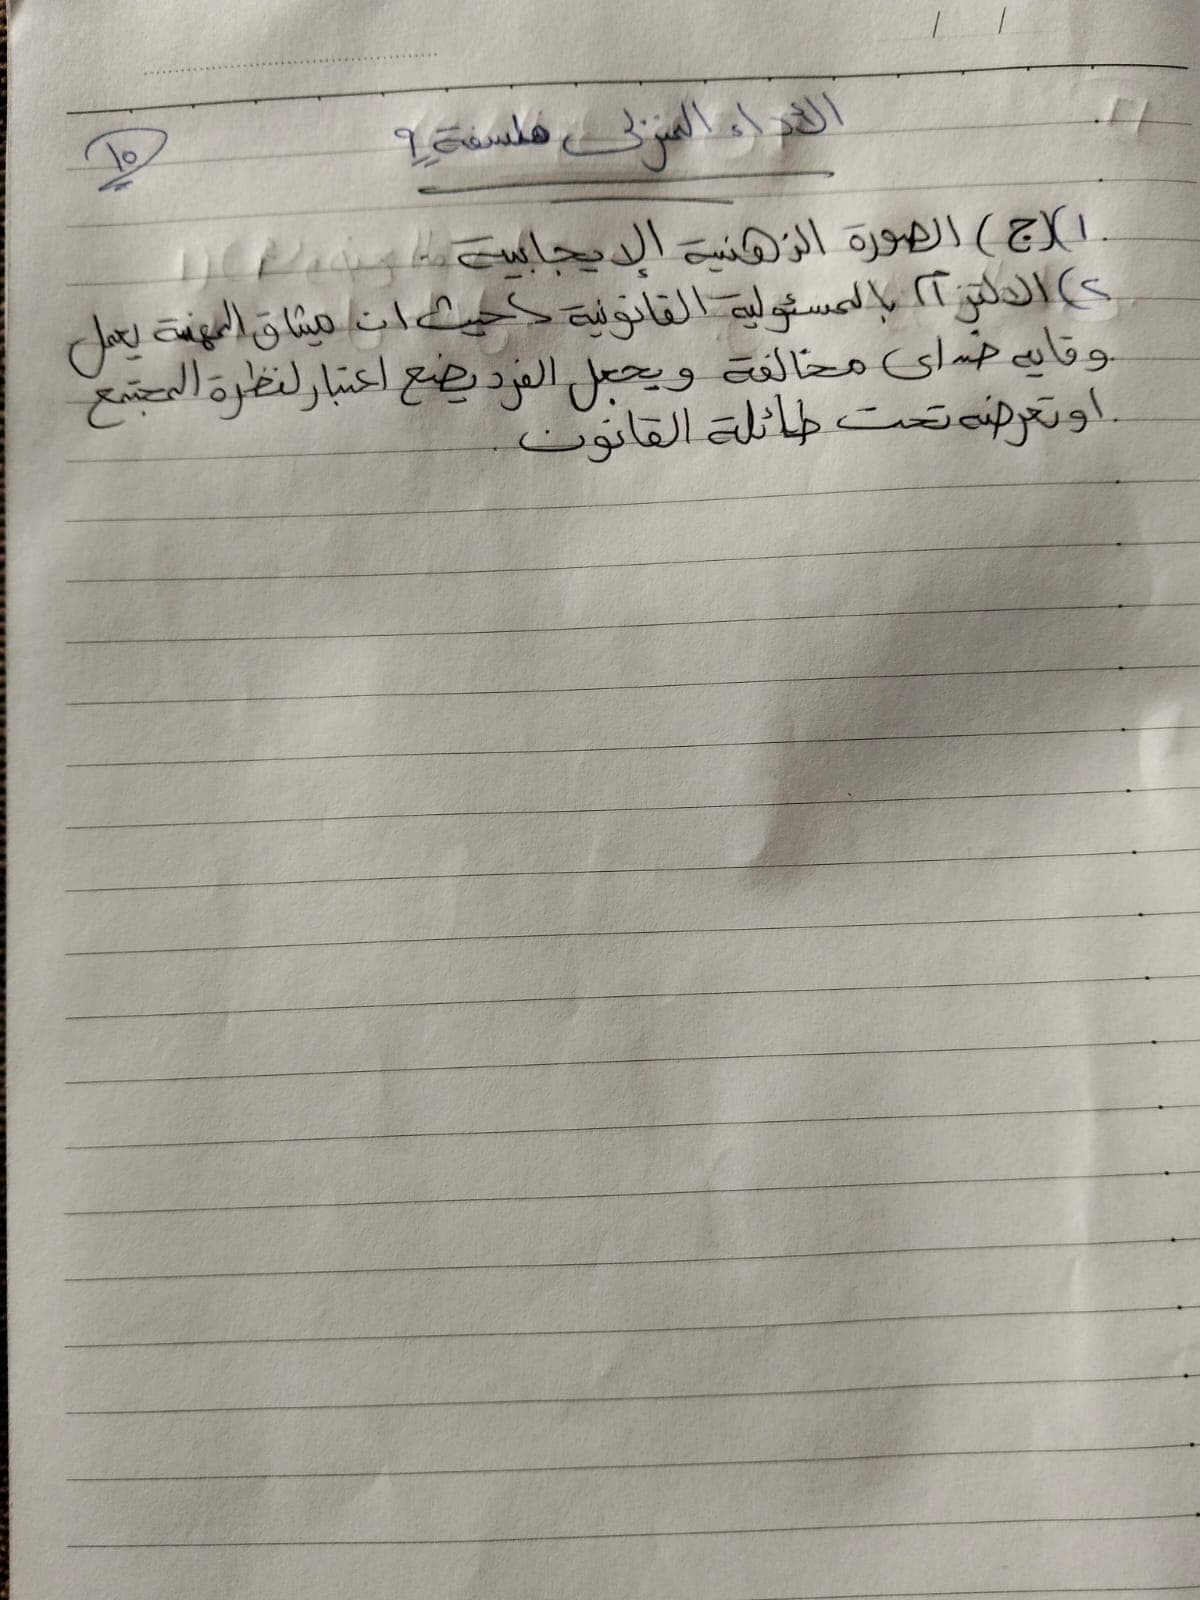 / /
الأداء المنزلى فلسفة ٩
١٥
١)(ج) الصورة الذهنية الإيجابية
٢) الالتزام بالمسئولية القانونية حيث ان ميثاق المهنة يعمل
وقايه ضد اى مخالفة ويجعل الفرد يضع اعتبار لنظرة المجتمع
او تعرضه تحت طائلة القانون.